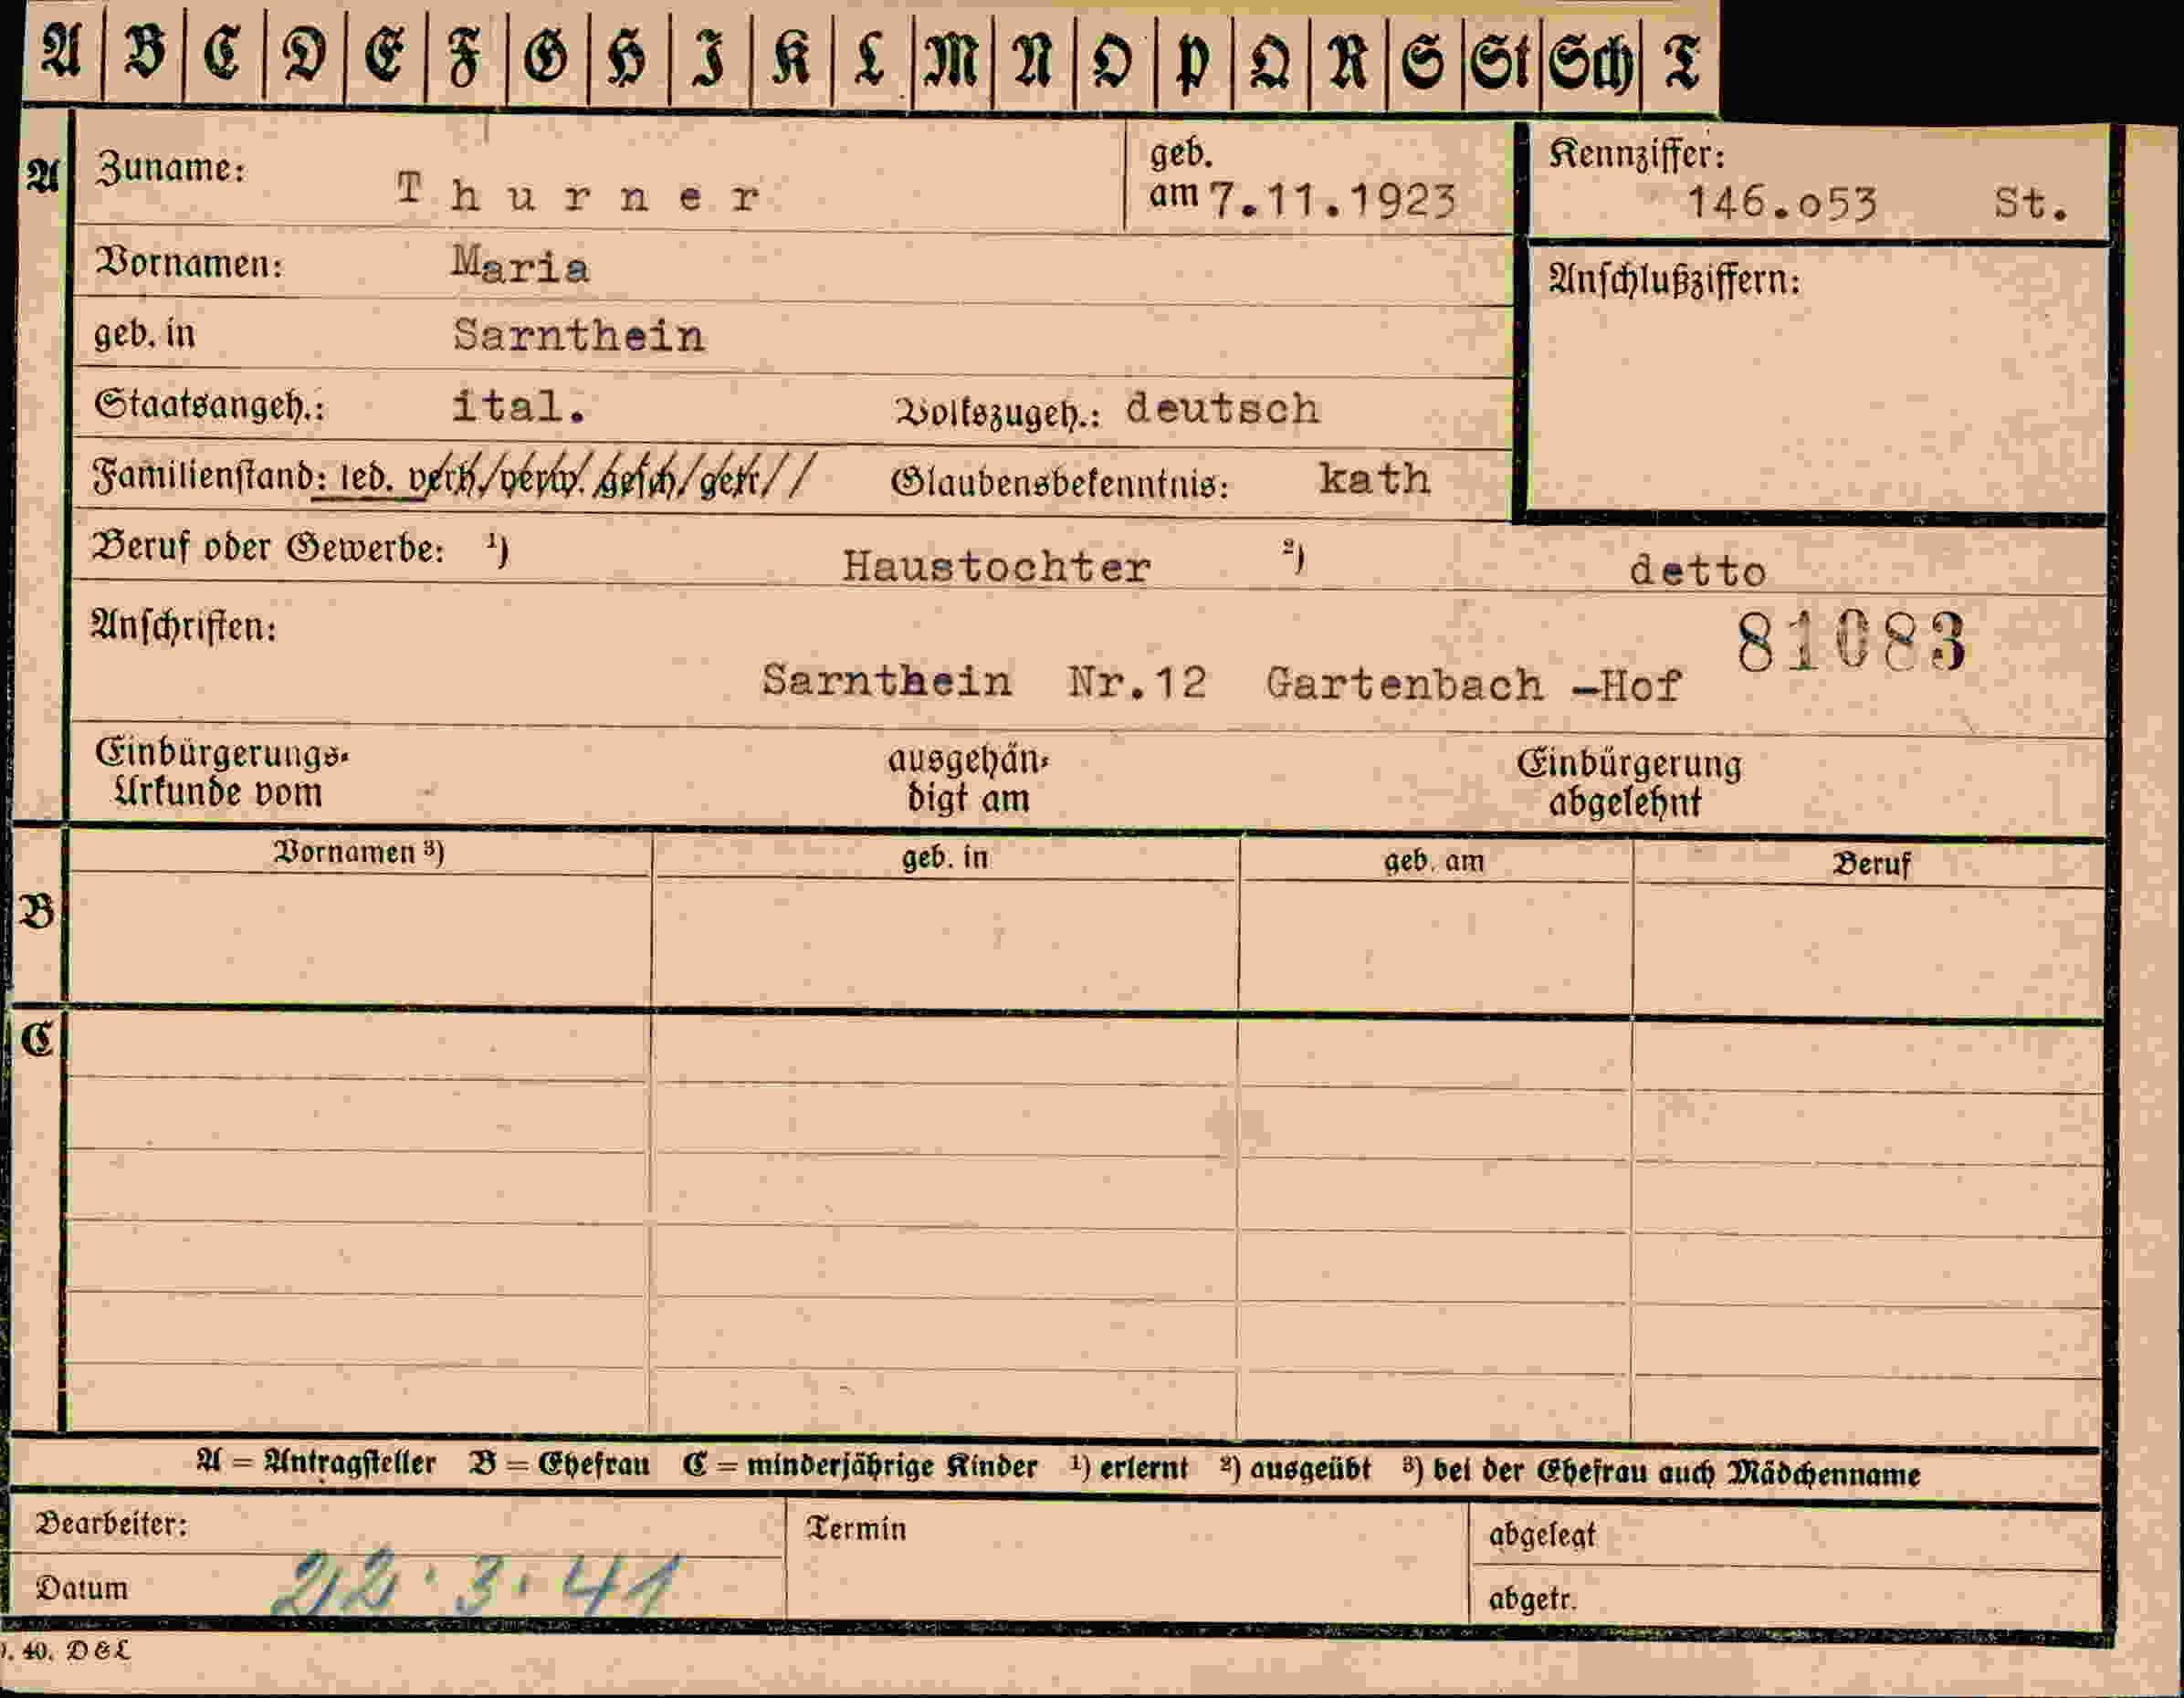 A B C D E F G H I K L M N O P Q R S St Sch T
A Zuname: Thurner geb. am 7.11.1923 Kennziffer: 146.o53 St.
Vornamen: Maria Anschlußziffern:
geb. in Sarnthein
Staatsangeh.: ital. Volkszugeh.: deutsch
Familienstand: led. verh/verw. gesch/getr// Glaubensbekenntnis: kath
Beruf oder Gewerbe: ¹) Haustochter ²) detto
Anschriften: 81083
Sarnthein Nr.12 Gartenbach -Hof
Einbürgerungs- ausgehän- Einbürgerung
Urkunde vom digt am abgelehnt
Vornamen ³) geb. in geb. am Beruf
B
C
A = Antragsteller B = Ehefrau C = minderjährige Kinder ¹) erlernt ²) ausgeübt ³) bei der Ehefrau auch Mädchenname
Bearbeiter: Termin abgelegt
Datum 22.3.41 abgetr.
. 40. D & L